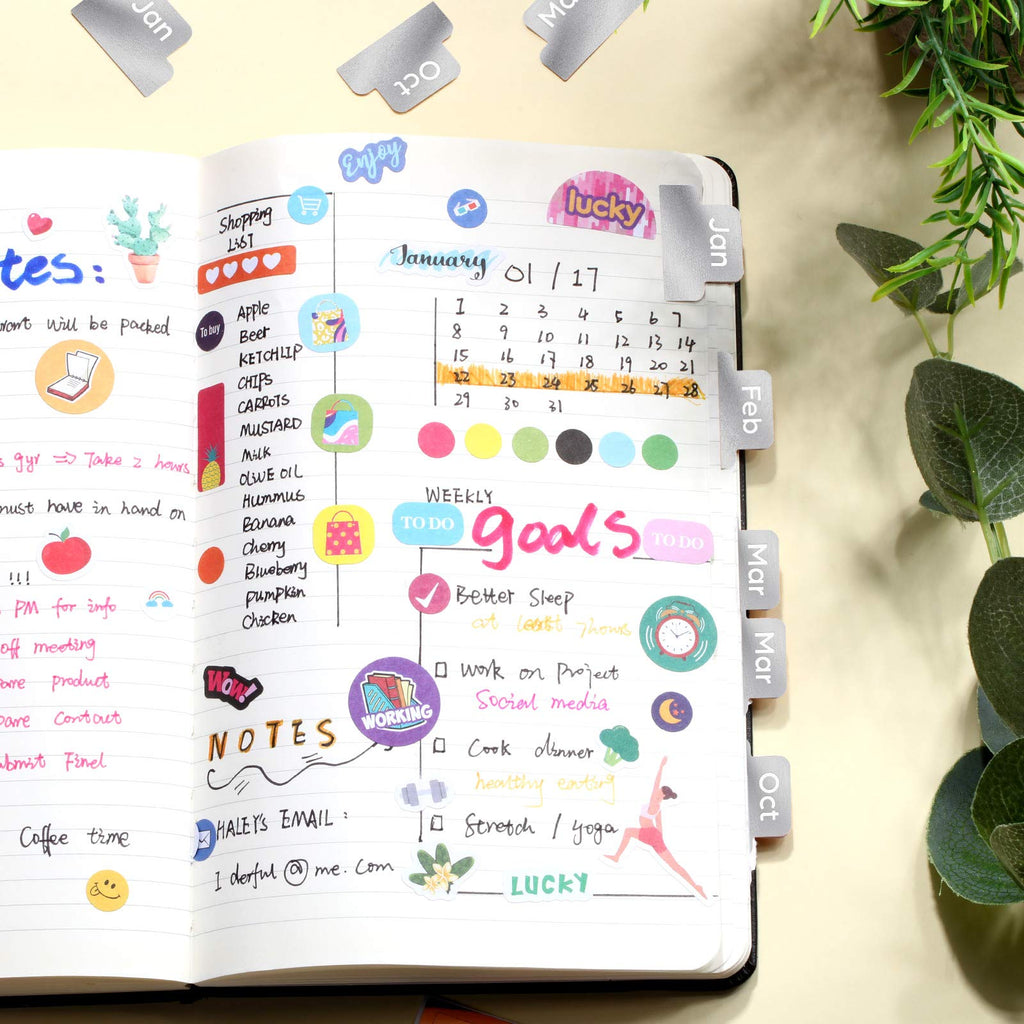 Jan
Oct
Enjoy
tes:
will be packed
gyr => Take 2 hours
must have in hand on
!!!
PM for info
off meeting
product
Coffee time
Shopping
LIST
To buy
Apple
Beer
KETCHLIP
CHIPS
CARROTS
MUSTARD
Milk
OLIVE OIL
Hummus
Banana
Cherry
Blueberry
Pumpkin
Chicken
Wow!
NOTES
WORKING
HALEY's EMAIL :
I derful @ me. com
lucky
January 01 / 17
1 2 3 4 5 6 7
8 9 10 11 12 13 14
15 16 17 18 19 20 21
22 23 24 25 26 27 28
29 30 31
WEEKLY
TO DO goals TO DO
Better Sleep
at least 7hours
Work on Project
Social media
Cook dinner
healthy eating
Stretch / yoga
LUCKY
Jan
Feb
Mar
Mar
Oct